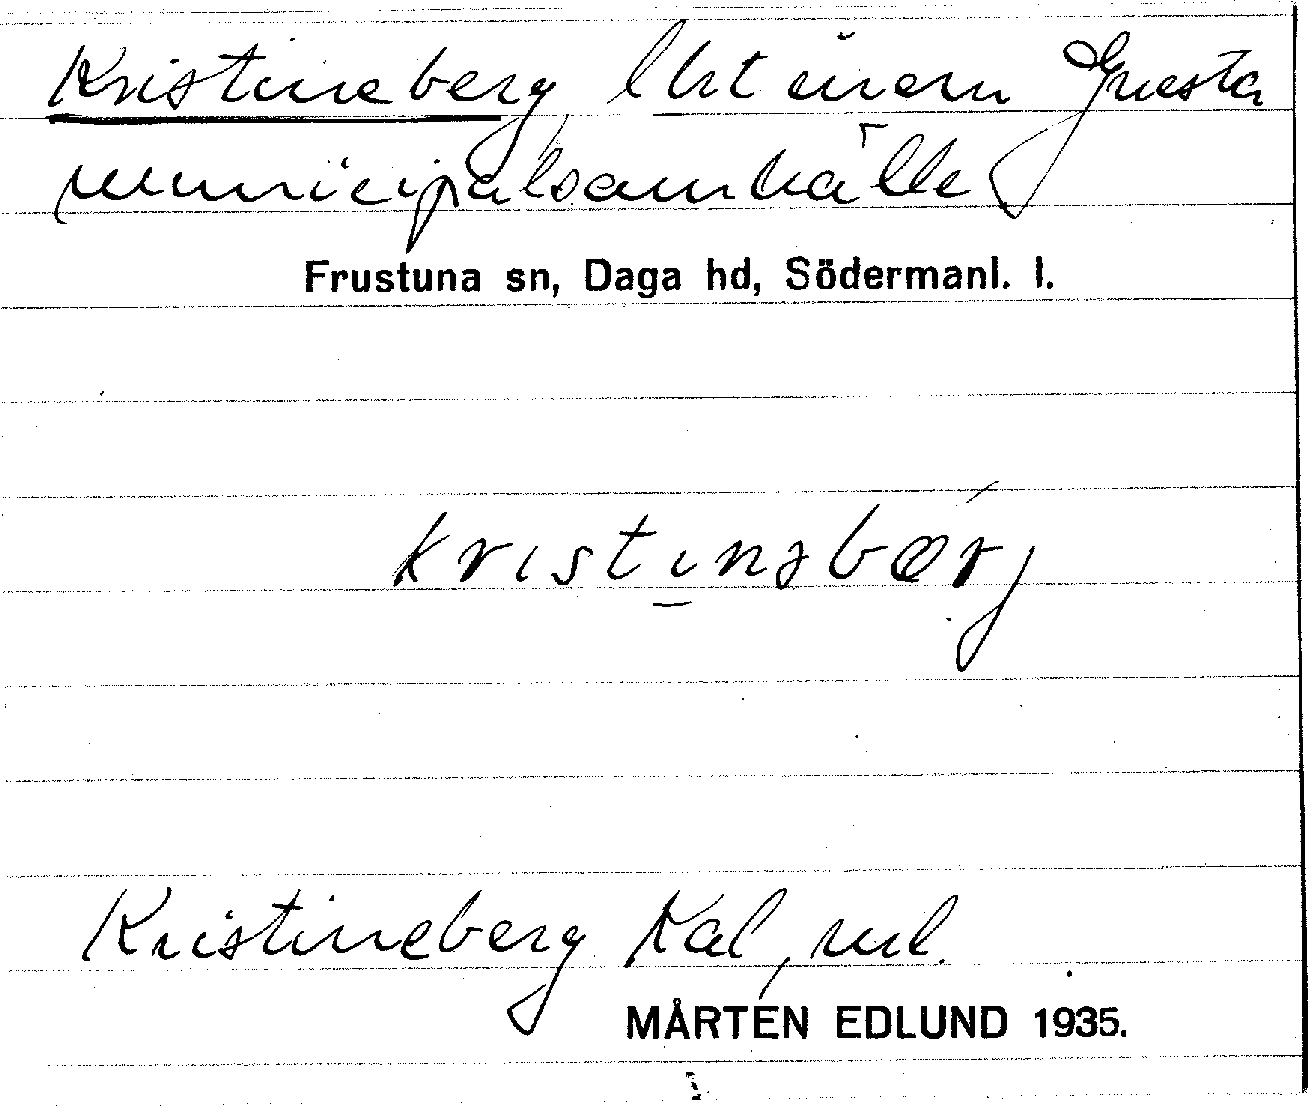 Kristineberg, lht inom Gnesta
municipalsamhälle
Frustuna sn, Daga hd, Södermanl. l.
kristinabærj
Kristineberg Kal, ml.
MÅRTEN EDLUND 1935.